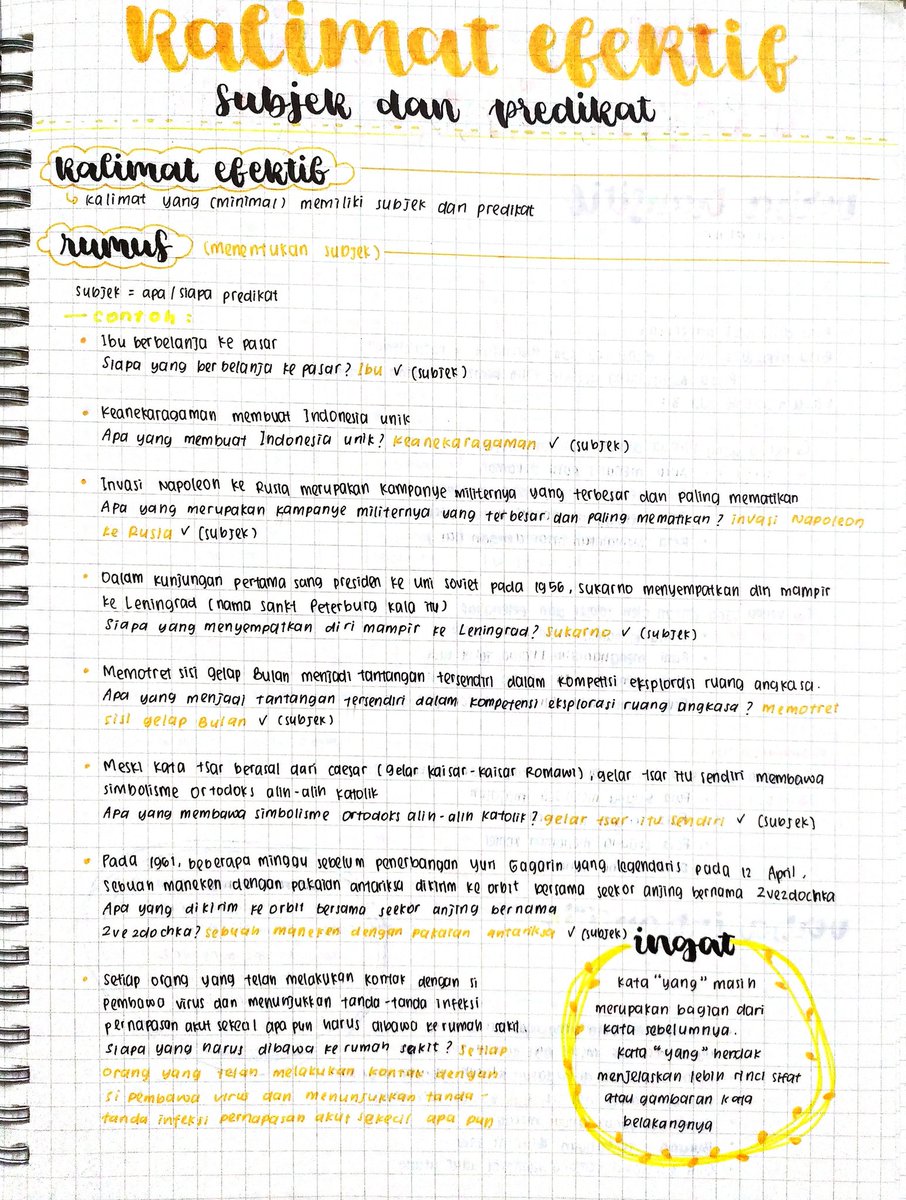 kalimat efektif
subjek dan predikat
kalimat efektif
↳ kalimat yang (minimal) memiliki subjek dan predikat
rumus (menentukan subjek)
subjek = apa/siapa predikat
— contoh :
• Ibu berbelanja ke pasar
Siapa yang berbelanja ke pasar? Ibu ✓ (subjek)
• Keanekaragaman membuat Indonesia unik
Apa yang membuat Indonesia unik? keanekaragaman ✓ (subjek)
• Invasi Napoleon ke Rusia merupakan kampanye militernya yang terbesar dan paling mematikan
Apa yang merupakan kampanye militernya yang terbesar dan paling mematikan? invasi Napoleon
ke Rusia ✓ (subjek)
• Dalam kunjungan pertama sang presiden ke uni soviet pada 1956, sukarno menyempatkan diri mampir
ke Leningrad (nama sankt Peterburg kala itu)
Siapa yang menyempatkan diri mampir ke Leningrad? sukarno ✓ (subjek)
• Memotret sisi gelap Bulan menjadi tantangan tersendiri dalam kompetisi eksplorasi ruang angkasa.
Apa yang menjadi tantangan tersendiri dalam kompetensi eksplorasi ruang angkasa? memotret
sisi gelap Bulan ✓ (subjek)
• Meski kata tsar berasal dari caesar (gelar kaisar-kaisar Romawi), gelar tsar itu sendiri membawa
simbolisme Ortodoks alih-alih katolik
Apa yang membawa simbolisme Ortodoks alih-alih katolik? gelar tsar itu sendiri ✓ (subjek)
• Pada 1961, beberapa minggu sebelum penerbangan yuri Gagarin yang legendaris pada 12 April,
sebuah maneken dengan pakaian antariksa dikirim ke orbit bersama seekor anjing bernama Zvezdochka
Apa yang dikirim ke orbit bersama seekor anjing bernama
Zvezdochka? sebuah maneken dengan pakaian antariksa ✓ (subjek)
• Setiap orang yang telah melakukan kontak dengan si
pembawa virus dan menunjukkan tanda-tanda infeksi
pernapasan akut sekecil apa pun harus dibawa ke rumah sakit.
Siapa yang harus dibawa ke rumah sakit? setiap
orang yang telah melakukan kontak dengan
si pembawa virus dan menunjukkan tanda-
tanda infeksi pernapasan akut sekecil apa pun
ingat
kata "yang" masih
merupakan bagian dari
kata sebelumnya.
kata "yang" hendak
menjelaskan lebih rinci sifat
atau gambaran kata
belakangnya